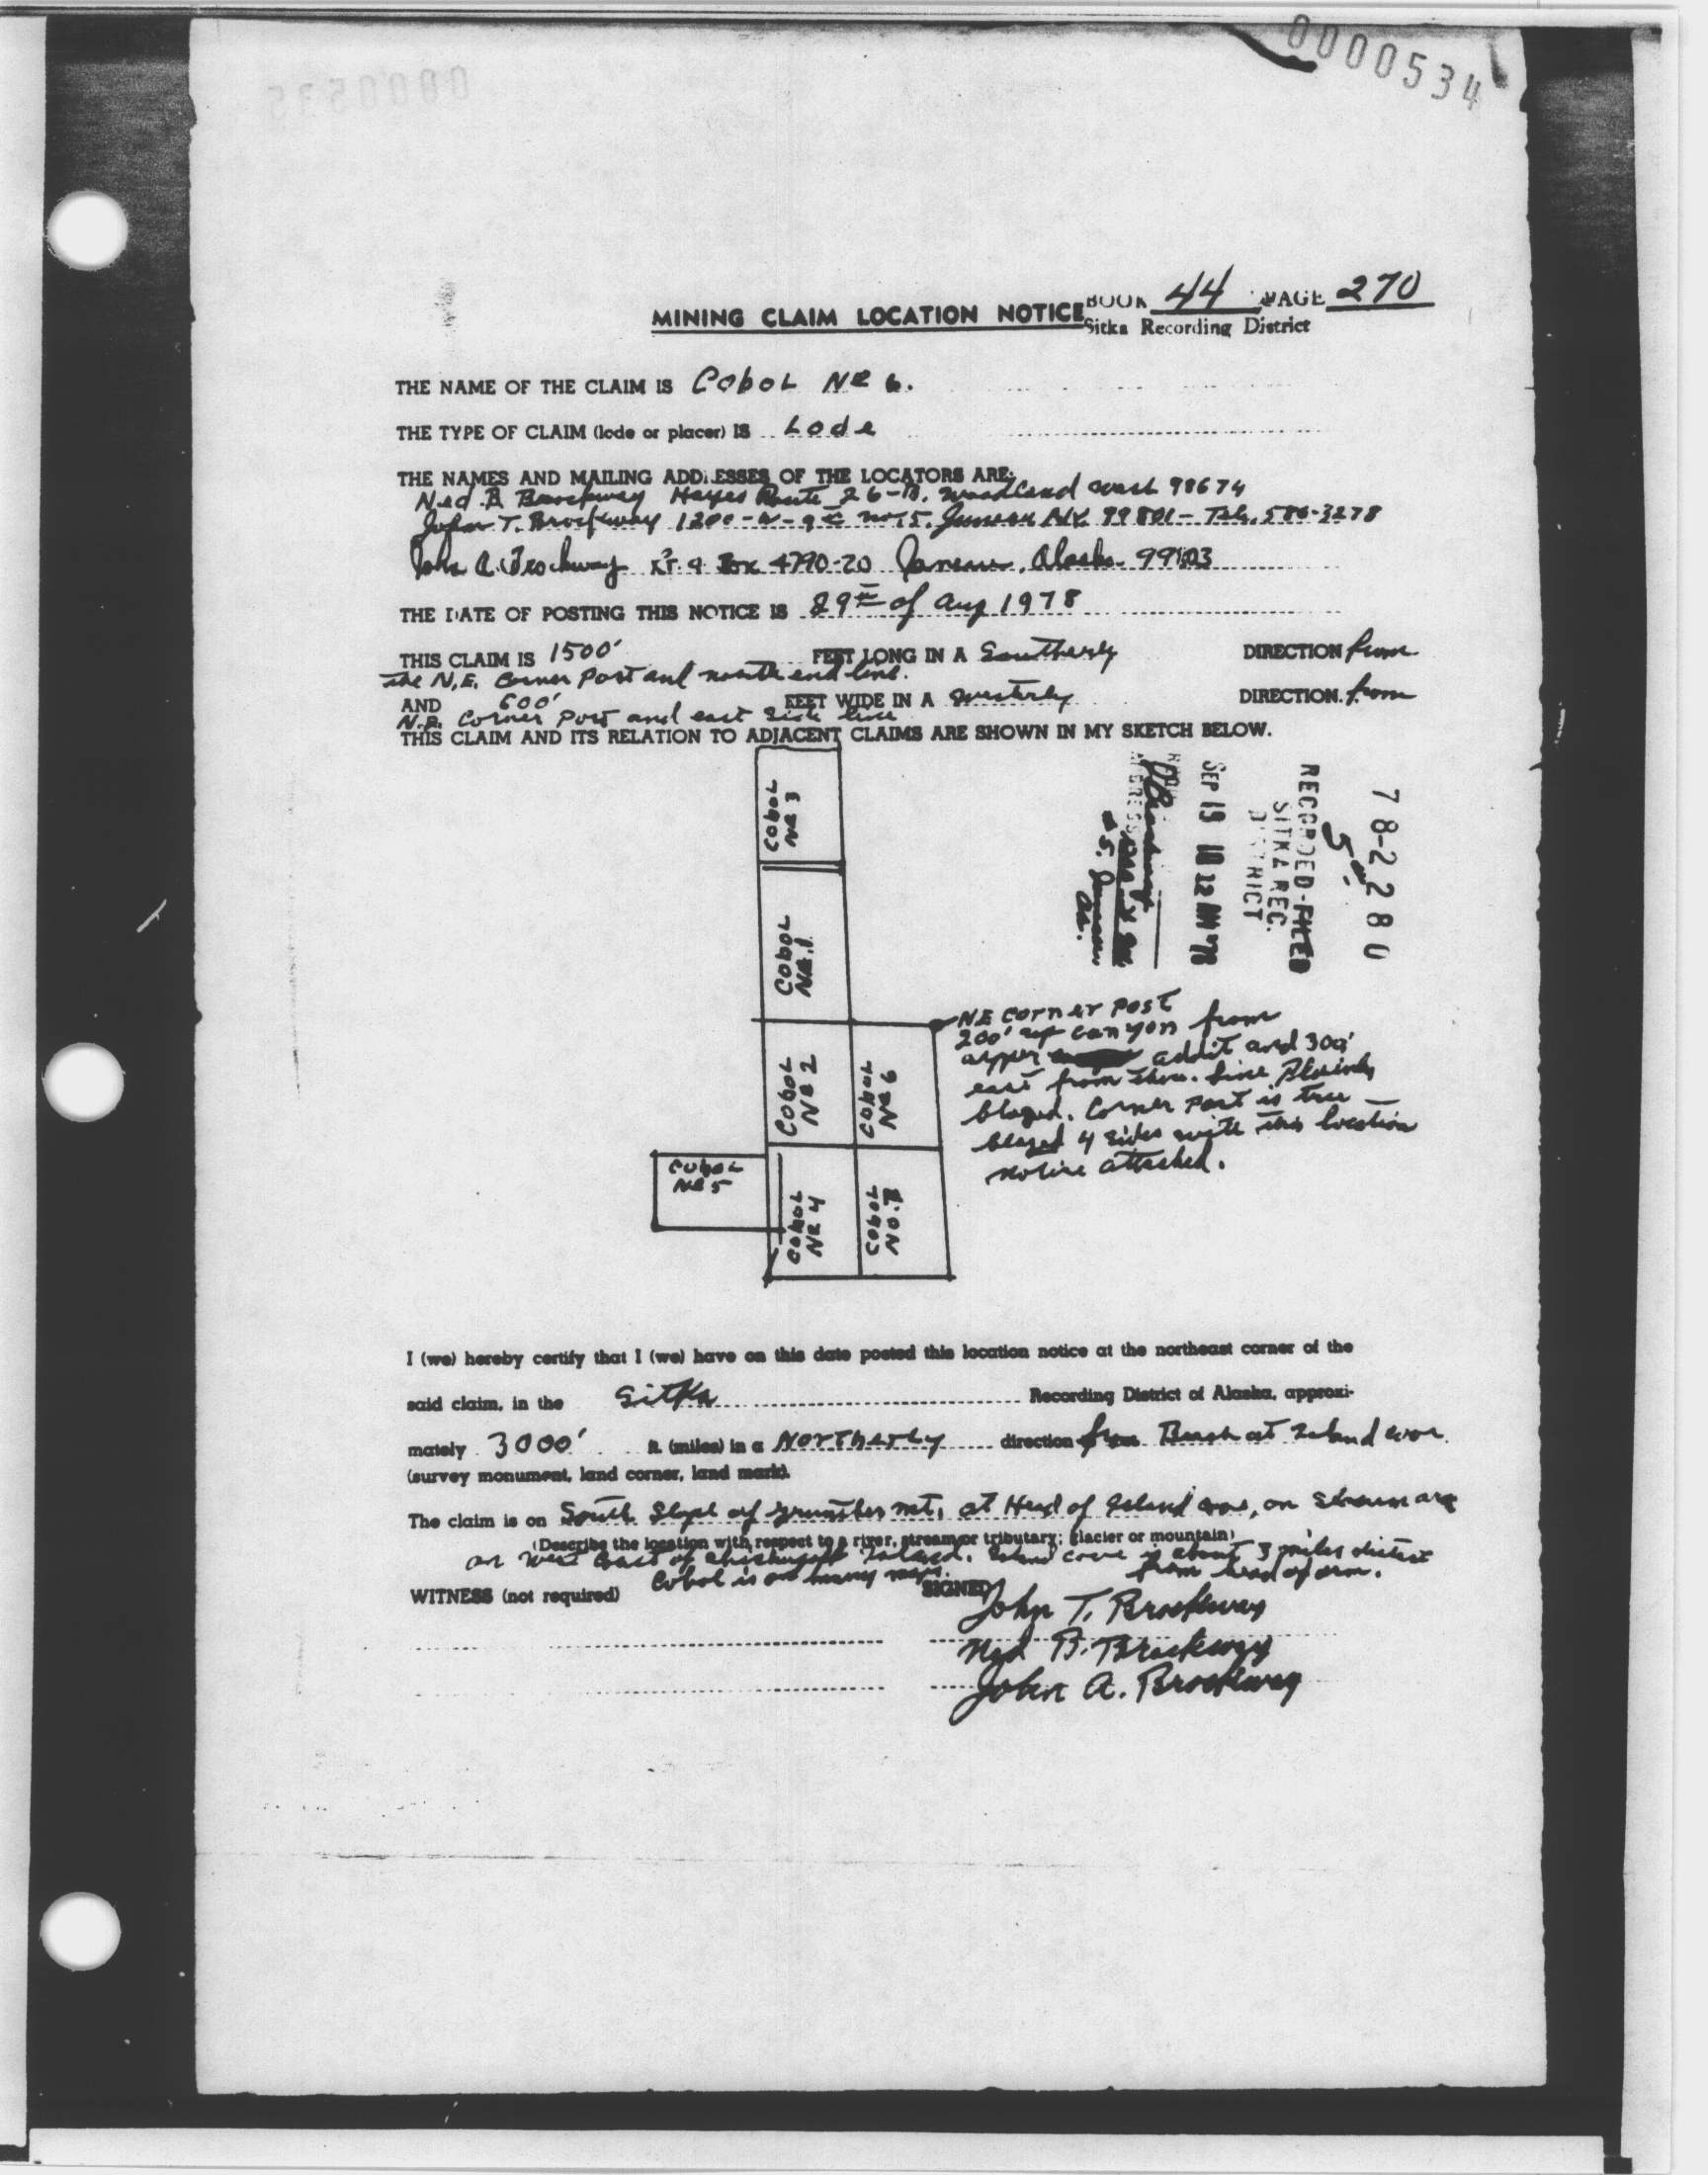 0000534
MINING CLAIM LOCATION NOTICE
BOOK 44 PAGE 270
Sitka Recording District
THE NAME OF THE CLAIM IS Cobol NR 6.
THE TYPE OF CLAIM (lode or placer) IS Lode
THE NAMES AND MAILING ADDRESSES OF THE LOCATORS ARE:
Ned B Brockway Hayes Route 26-B. Woodland Wash 98674
John T. Brockway 1200-W-9th No 5. Juneau AK 99801 - Tel. 586-3278
John A. Brockway RT. 4 Box 4790-20 Juneau, Alaska 99803
THE DATE OF POSTING THIS NOTICE IS 29th of Aug 1978
THIS CLAIM IS 1500' FEET LONG IN A Southerly DIRECTION from
the N.E. Corner Post and north end line.
AND 600' FEET WIDE IN A westerly DIRECTION from
N.E. Corner Post and east side line
THIS CLAIM AND ITS RELATION TO ADJACENT CLAIMS ARE SHOWN IN MY SKETCH BELOW.
Cobol
NR 3
Cobol
NR.1
Cobol
NR 2
Cobol
NR 6
Cobol
NR 5
Cobol
NR 4
Cobol
NO.
78-2280
RECORDED-FILED
SITKA REC.
DISTRICT
SEP 19 10 12 AM '78
NE Corner Post
200' up canyon from
upper addit and 300'
east from there. Line Plainly
blazed. Corner Post is tree
blazed 4 sides with this location
notice attached.
I (we) hereby certify that I (we) have on this date posted this location notice at the northeast corner of the
said claim, in the Sitka Recording District of Alaska, approxi-
mately 3000' ft. (miles) in a Northerly direction from at Island cove
(survey monument, land corner, land mark).
The claim is on South Slope of mt, at Head of Island cove, on arm
(Describe the location with respect to a river, stream or tributary; glacier or mountain)
on West Coast of Chichagof Island. Island cove is about 3 miles distant
from head of arm.
Cobol is on many maps.
WITNESS (not required) SIGNED
John T. Brockway
Ned B. Brockway
John A. Brockway